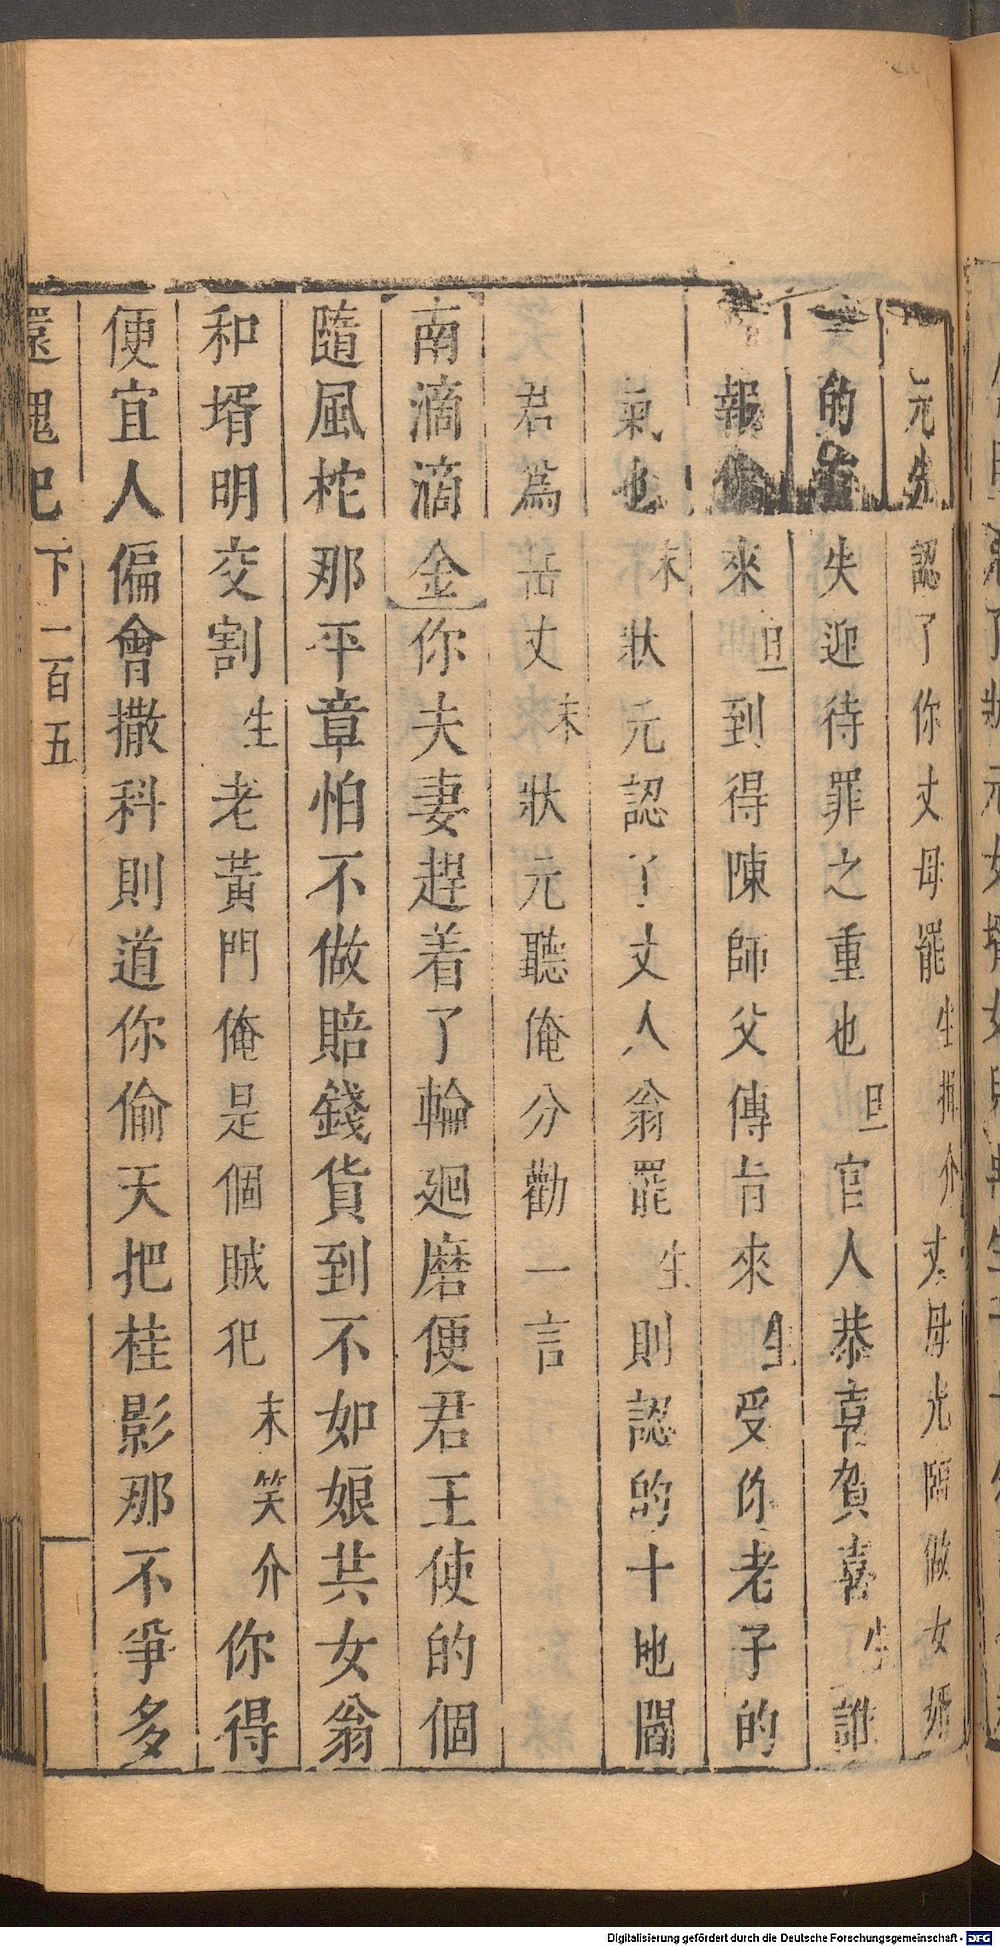 元先認了你丈母罷生揖介丈母光臨做女婿
的有失迎待罪之重也旦官人恭喜賀喜生誰
報你來旦到得陳師父傳旨來生受你老子的
氣也末狀元認了丈人翁罷生則認的十地閻
君為岳丈末狀元聽俺分勸一言
南滴滴金你夫妻趕着了輪廻磨便君王使的個
隨風柁那平章怕不做賠錢貨到不如娘共女翁
和壻明交割生老黃門俺是個賊犯末笑介你得
便宜人偏會撒科則道你偷天把桂影那不爭多
還魂記 下 一百五
Digitalisierung gefördert durch die Deutsche Forschungsgemeinschaft - DFG